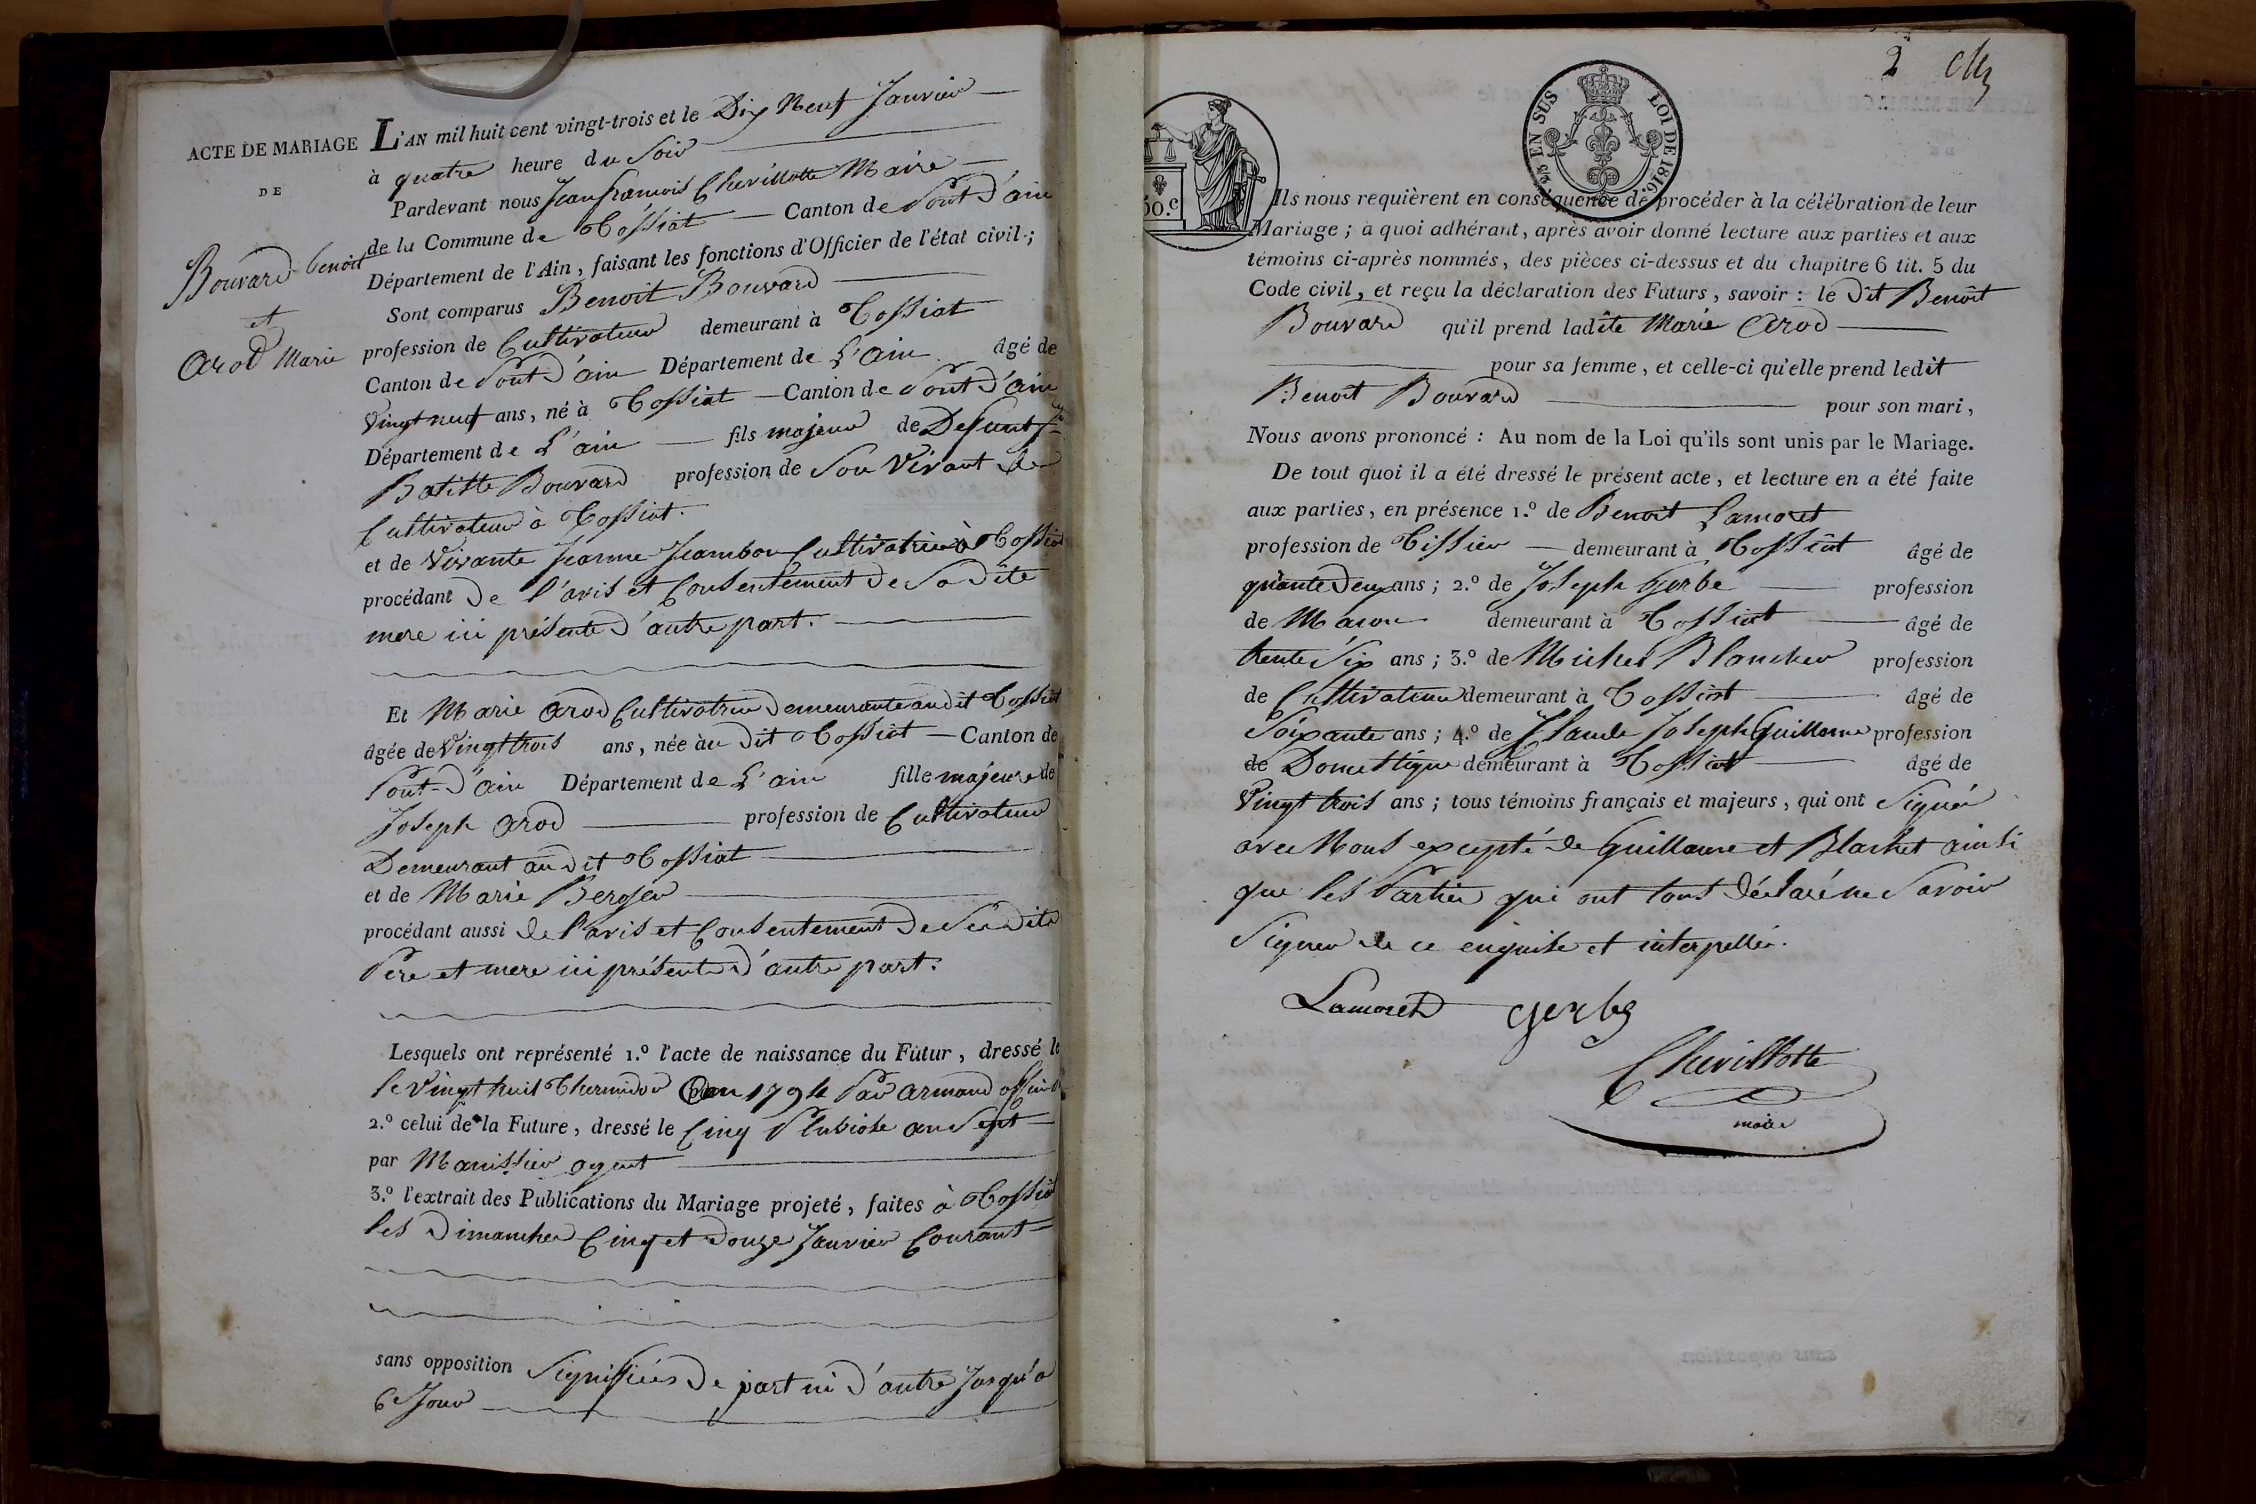 ACTE DE MARIAGE
DE
Bouvard benoit
et
Arod Marie
L'AN mil huit cent vingt-trois et le Dix Neuf Janvier
à quatre heure du Soir
Pardevant nous Jean françois Chevillotte Maire
de la Commune de Tossiat Canton de Pont d'ain
Département de l'Ain, faisant les fonctions d'Officier de l'état civil;
Sont comparus Benoit Bouvard
profession de Cultivateur demeurant à Tossiat
Canton de Pont d'ain Département de L'ain âgé de
Vingt neuf ans, né à Tossiat Canton de Pont d'ain
Département de L'ain fils majeur de Defunt
Batiste Bouvard profession de Son Vivant
Cultivateur à Tossiat.
et de Vivante Jeanne Jeambon Cultivatrice à Tossiat
procédant De l'avis et Consentement De Sa dite
mere ici présente d'autre part.
Et Marie Arod Cultivatrice Demeurante au dit Tossiat
âgée de Vingt trois ans, née àu dit Tossiat Canton de
Pont-d'ain Département de L'ain fille majeure de
Joseph Arod profession de Cultivateur
Demeurant au dit Tossiat
et de Marie Berger
procédant aussi de l'avis et Consentement De Ses Dits
Pere et mere ici présents d'autre part.
Lesquels ont représenté 1.º l'acte de naissance du Futur, dressé le
le Vingt huit Thermidor 1794 Par Armand
2.º celui de la Future, dressé le Cinq Pluviose an Sept
par Manissier agent
3.º l'extrait des Publications du Mariage projeté, faites à Tossiat
les Dimanches Cinq et Douze Janvier Courant
sans opposition Signifiées De part ni d'autre Jusqu'a
Ce Jour
2
EN SUS LOI DE 1816.
50.c
Ils nous requièrent en conséquence de procéder à la célébration de leur
Mariage; à quoi adhérant, après avoir donné lecture aux parties et aux
témoins ci-après nommés, des pièces ci-dessus et du chapitre 6 tit. 5 du
Code civil, et reçu la déclaration des Futurs, savoir : le dit Benoit
Bouvard qu'il prend ladite Marie Arod
pour sa femme, et celle-ci qu'elle prend ledit
Benoit Bouvard pour son mari,
Nous avons prononcé : Au nom de la Loi qu'ils sont unis par le Mariage.
De tout quoi il a été dressé le présent acte, et lecture en a été faite
aux parties, en présence 1.º de Benoit Lamoret
profession de Tissier demeurant à Tossiat âgé de
quante Deux ans; 2.º de Joseph Gerbe profession
de Maçon demeurant à Tossiat âgé de
trente Six ans; 3.º de Michel Blanchet profession
de Cultivateur demeurant à Tossiat âgé de
Soixante ans; 4.º de Claude Joseph Guillaume profession
de Domestique demeurant à Tossiat âgé de
Vingt trois ans; tous témoins français et majeurs, qui ont Signés
avec Nous excepté de Guillaume et Blachet ainsi
que les Parties qui ont tous déclaré ne Savoir
Signer de ce enquise et interpellés.
Lamoret Gerbe
Chevillotte
maire